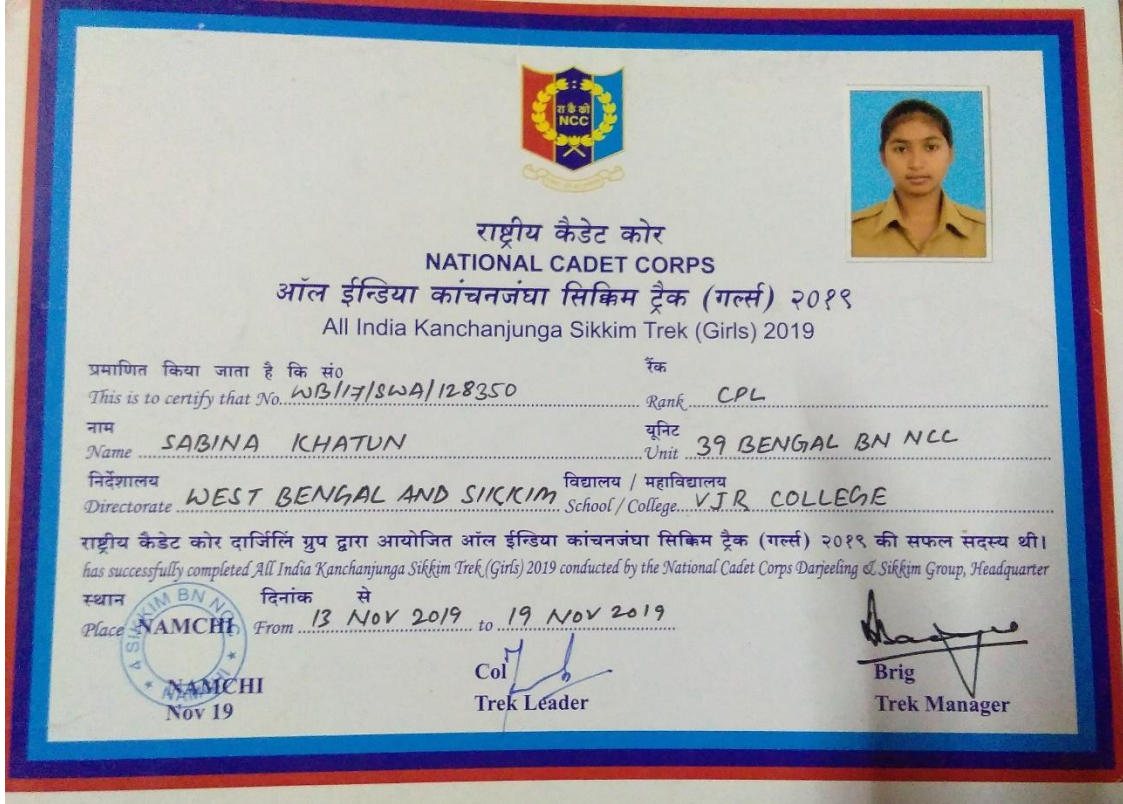 रा कै को
NCC
राष्ट्रीय कैडेट कोर
NATIONAL CADET CORPS
ऑल ईन्डिया कांचनजंघा सिक्किम ट्रैक (गर्ल्स) २०१९
All India Kanchanjunga Sikkim Trek (Girls) 2019
प्रमाणित किया जाता है कि सं० रैंक
This is to certify that No. WB/17/SWA/128350 Rank CPL
नाम यूनिट
Name SABINA KHATUN Unit 39 BENGAL BN NCC
निर्देशालय विद्यालय / महाविद्यालय
Directorate WEST BENGAL AND SIKKIM School / College VJR COLLEGE
राष्ट्रीय कैडेट कोर दार्जिलिं ग्रुप द्वारा आयोजित ऑल ईन्डिया कांचनजंघा सिक्किम ट्रैक (गर्ल्स) २०१९ की सफल सदस्य थी।
has successfully completed All India Kanchanjunga Sikkim Trek (Girls) 2019 conducted by the National Cadet Corps Darjeeling & Sikkim Group, Headquarter
स्थान दिनांक से
Place NAMCHI From 13 NOV 2019 to 19 NOV 2019
SIKKIM BN NCC
NAMCHI
Col Brig
NAMCHI Trek Leader Trek Manager
Nov 19